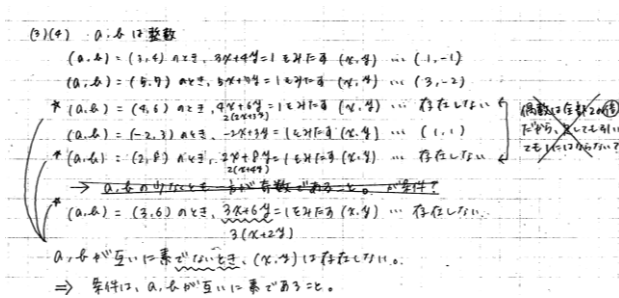 (3)(4) a, b は 整数
(a, b) = (3, 4) のとき, 3x+4y=1をみたす (x, y) … (1, -1)
(a, b) = (5, 7) のとき, 5x+7y=1をみたす (x, y) … (3, -2)
* (a, b) = (4, 6) のとき, 4x+6y=1をみたす (x, y) … 存在しない
2(2x+3y)
(a, b) = (-2, 3) のとき, -2x+3y=1をみたす (x, y) … (1, 1)
* (a, b) = (2, 8) のとき, 2x+8y=1をみたす (x, y) … 存在しない
2(x+4y)
偶数は全部2の倍
だから、 しても引い
ても1にはならない?
→ a, b の少なくとも が奇数であること。が条件?
* (a, b) = (3, 6) のとき, 3x+6y=1をみたす (x, y) … 存在しない
3(x+2y)
a, b が互いに素でないとき、(x, y) は存在しない。
⇒ 条件は、a, b が互いに素であること。